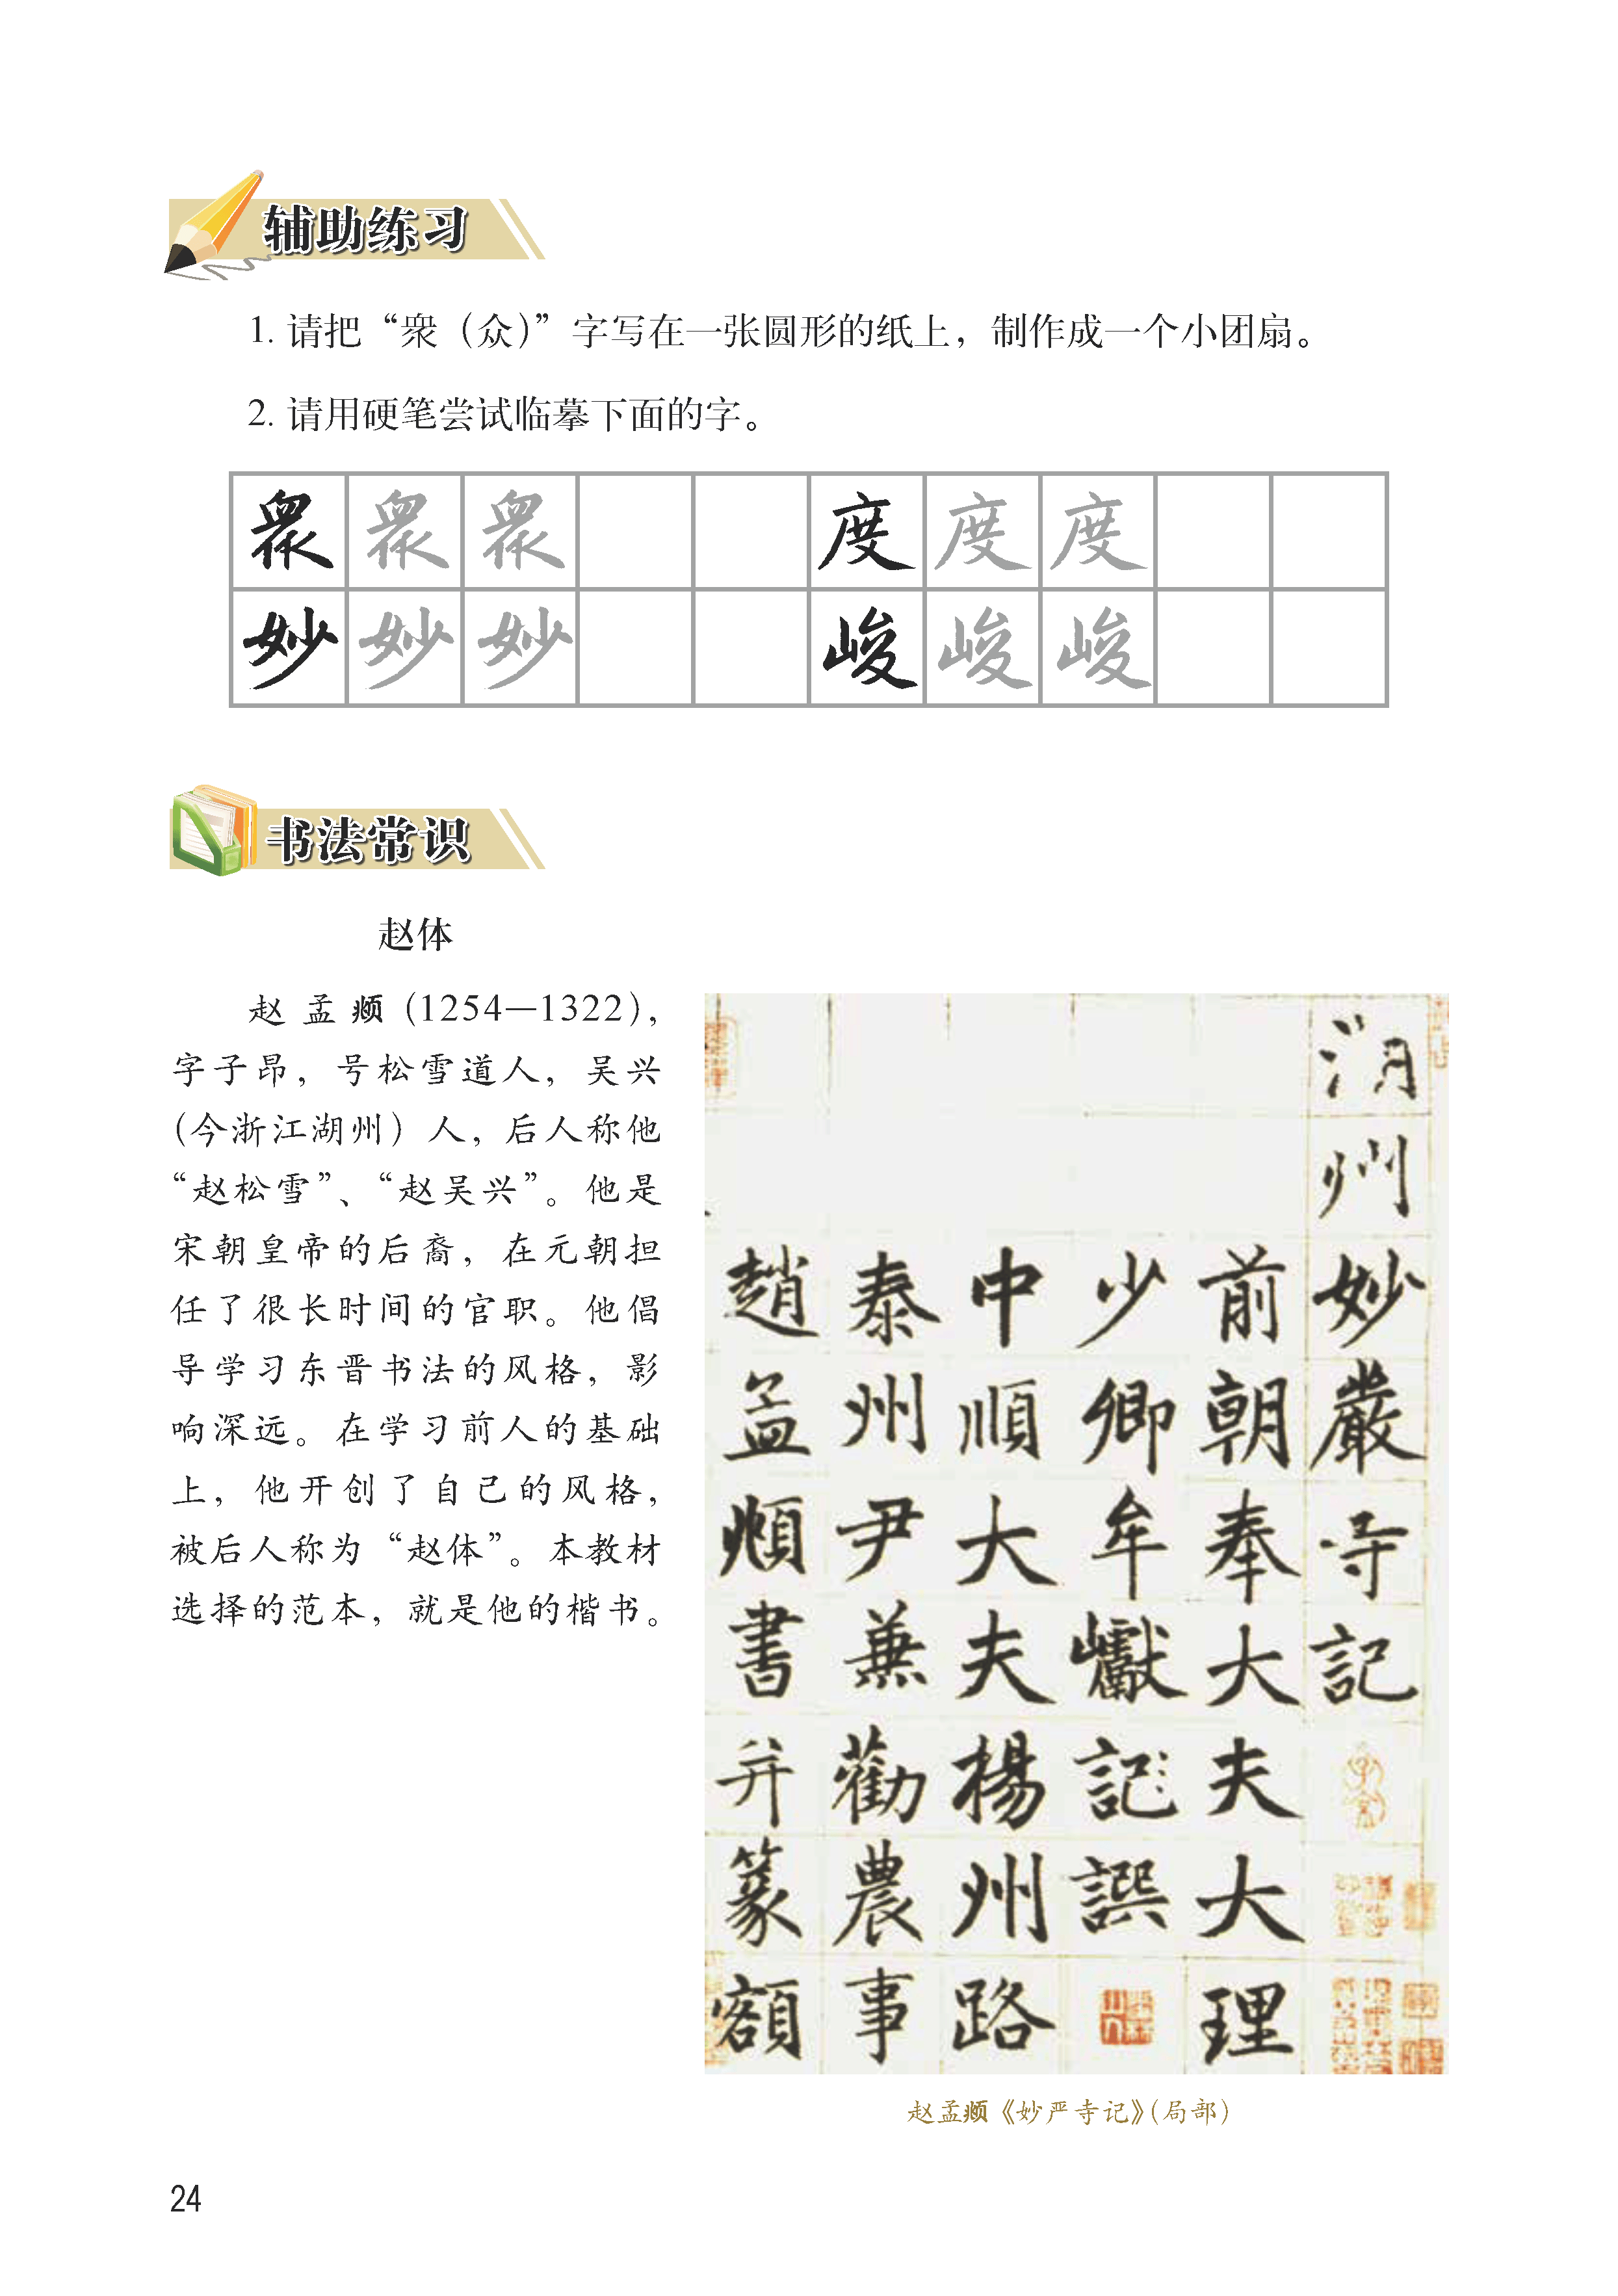 辅助练习
1. 请把“衆（众）”字写在一张圆形的纸上，制作成一个小团扇。
2. 请用硬笔尝试临摹下面的字。
衆 衆 衆 度 度 度
妙 妙 妙 峻 峻 峻
书法常识
赵体
赵孟頫（1254—1322），
字子昂，号松雪道人，吴兴
（今浙江湖州）人，后人称他
“赵松雪”、“赵吴兴”。他是
宋朝皇帝的后裔，在元朝担
任了很长时间的官职。他倡
导学习东晋书法的风格，影
响深远。在学习前人的基础
上，他开创了自己的风格，
被后人称为“赵体”。本教材
选择的范本，就是他的楷书。
湖州妙嚴寺記
前朝奉大夫大理
少卿牟巘記譔
中順大夫楊州路
泰州尹兼勸農事
趙孟頫書并篆額
赵孟頫《妙严寺记》（局部）
24